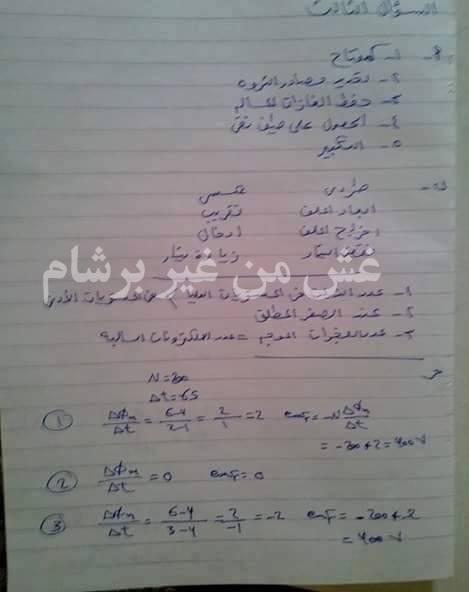 السؤال الثالث
١- كمفتاح
٢- تقدير مصادر الثروة
٣- حفظ الغازات المسالة
٤- الحصول على طيف نقي
٥- التكبير
طردى عكسى
ابعاد الملف تقريب
اخراج الملف ادخال
نقص التيار زيادة تيار
غش من غير برشام
١- عدد الذرات فى المستويات العليا > فى المستويات الأدنى
٢- عند الصفر المطلق
٣- عدد الفجوات الموجبة = عدد الالكترونات السالبة
N=200
Δt=
① Δϕm/Δt = 6-4/2-1 = 2/1 = 2 emf = -N Δϕm/Δt
= -200*2 = 400 V
② Δϕm/Δt = 0 emf = 0
③ Δϕm/Δt = 6-4/3-4 = 2/-1 = -2 emf = -200*-2
= 400 V